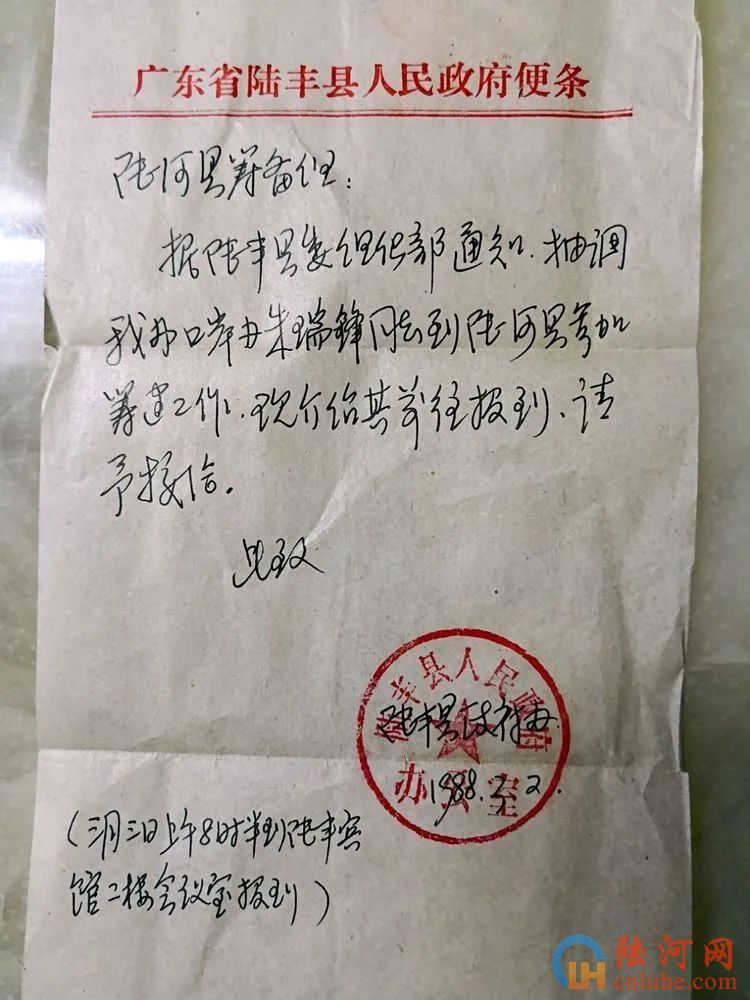 广东省陆丰县人民政府便条
陆河县筹备组:
据陆丰县委组织部通知,抽调
我办口岸办朱瑞锋同志到陆河县参加
筹建工作,现介绍其前往报到,请
予接洽。
此致
陆丰县人民政府
办公室
陆丰县政府办
1988.3.2.
(三月三日上午8时半到陆丰宾
馆二楼会议室报到)
陆河网
cnluhe.com